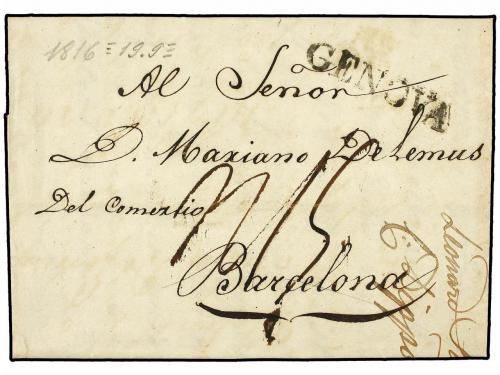 1816=19.9=
GENOVA
Al Señor
D. Mariano DeLemus
Del Comertio
Barcelona
Leonard